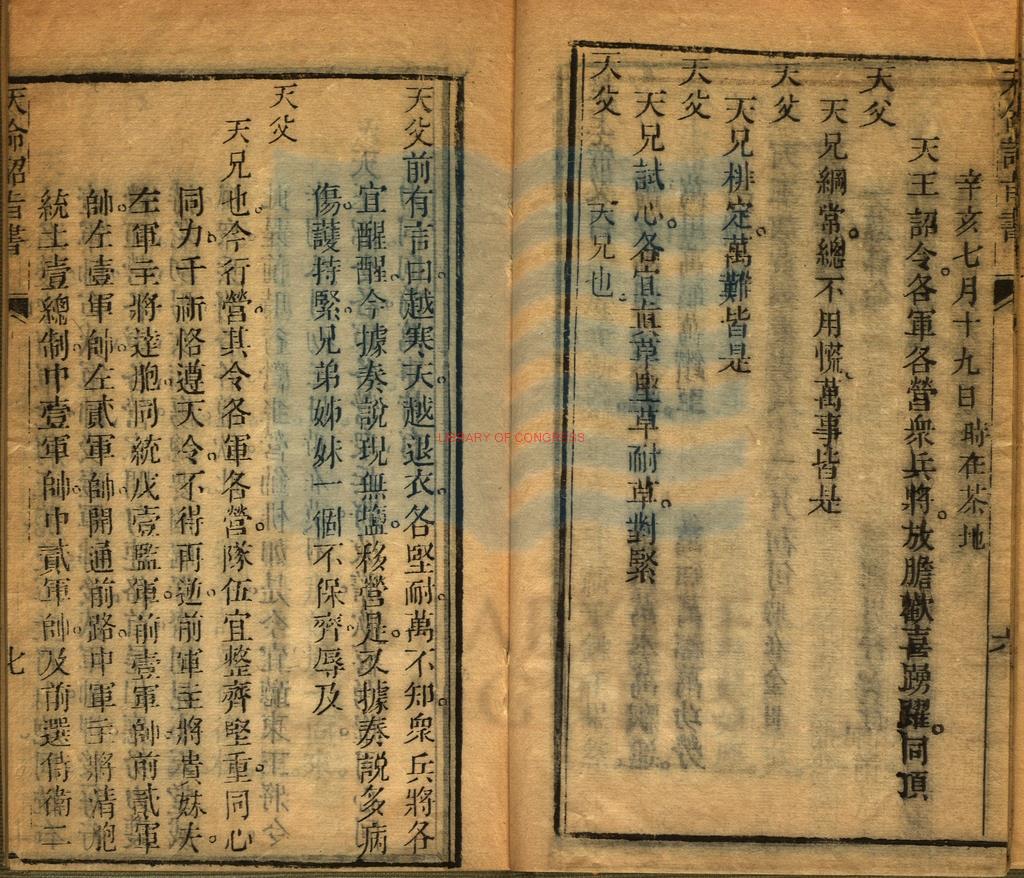 天命詔旨書
六
辛亥七月十九日時在茶地
天王詔令。各軍各營衆兵將。放膽歡喜踴躍。同頂
天父
天兄綱常。總不用慌。萬事皆是
天父
天兄排定。萬難皆是
天父
天兄試心。各宜眞草堅草耐草。對緊
天父天兄也。
天父前有言曰。越寒天。越退衣。各堅耐。萬不知。衆兵將各
宜醒醒。今據奏說現無鹽。移營是。又據奏說多病
傷。護持緊。兄弟姊妹一個不保齊。辱及
天父
天兄也。今行營。其令各軍各營。隊伍宜整齊堅重。同心
同力。千祈恪遵天令。不得再逆。前軍主將貴妹夫。
左軍主將達胞。同統戊壹監軍。前壹軍帥。前貳軍
帥。左壹軍帥。左貳軍帥。開通前路。中軍主將清胞。
統土壹總制。中壹軍帥。中貳軍帥。及前選侍衛二
天命詔旨書
七
LIBRARY OF CONGRESS